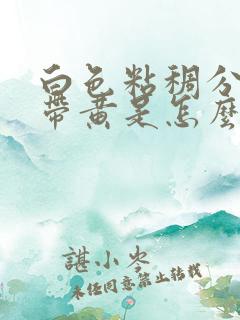 白色粘稠分
带黄是怎么
谌小岑
未经同意禁止转载